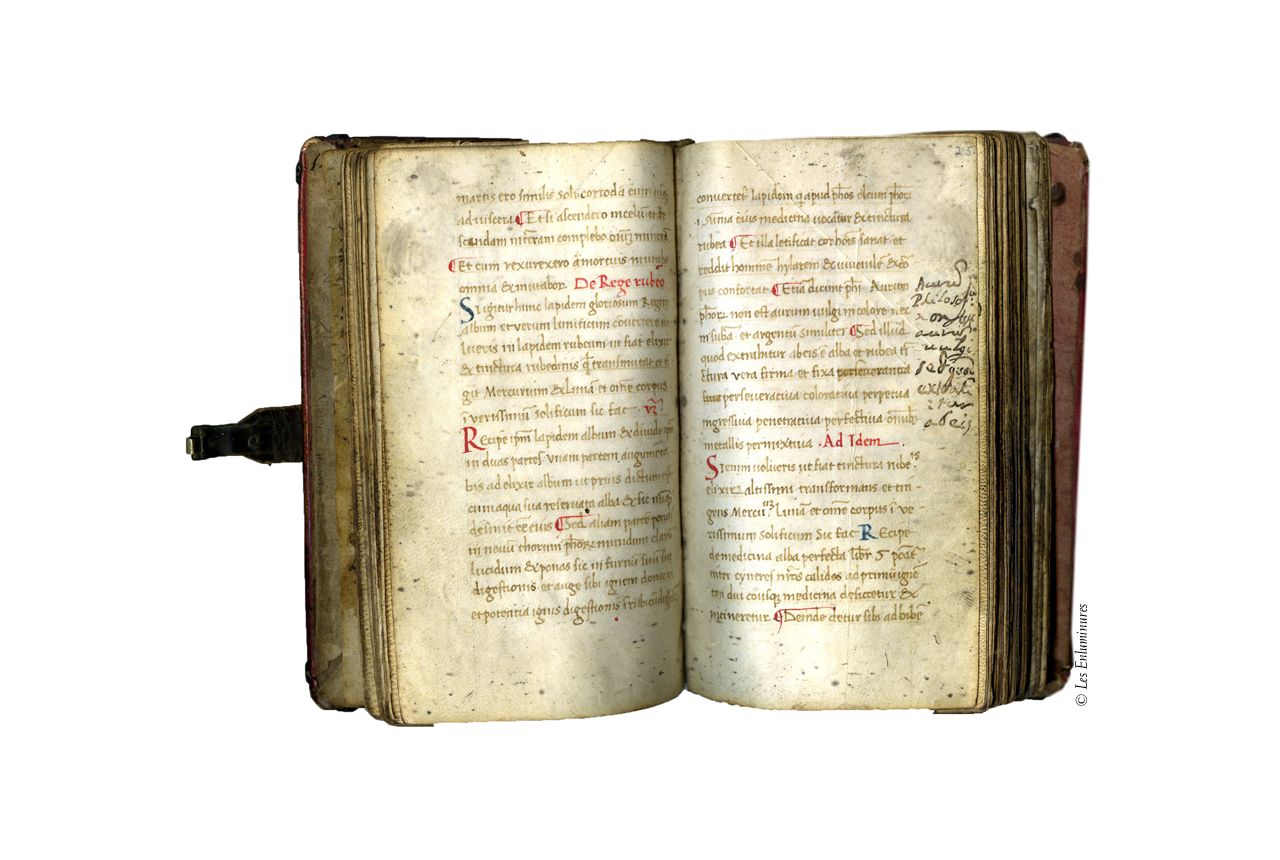 martis ero similis soli corroda cum
ad viscera ¶ Et si ascendero in celũ et
scandam in terram complebo
¶ Et cum rexurexero a mortuis mutabo
omnia & mutabor De Rege rubeo
Si igitur hunc lapidem gloriosum Regem
album et verum lunificum cõvertere vo
lueris in lapidem rubeum ut fiat elixir
& tinctura rubedinis transmutat et ti
git Mercurium & Lunã et omẽ corpus
ĩ verissimũ solificum sic fac
Recipe ipm̃ lapidem album & divide ipm̃
in duas partes vnam partem augmẽta
bis ad elixir album ut prius dictum est
cum aqua sua reservata alba & sic
desinit eẽ eius ¶ Sed aliam partẽ ponas
in novũ thorum mundum clarũ
lucidum & ponas sic in furnũ suũ
digestionis et auge sibi ignem donec
et potentia ignis digestionis
23
convertet lapidem apud phos oleum
ĩ Sũma eius medicina vocatur & tinctura
rubea ¶ Et illa letificat cor hois sanat et
reddit hominẽ hylarem & iuuenilẽ & cõ
pus confortat ¶ Etiã dicunt phi Aurum
non est aurum vulgi in colore nec
in subã et argentũ similiter ¶ Sed illud
quod extrahitur ab eis ẽ alba et rubea ti
ctura vera firma et fixa perseverantia
perseverativa colorativa perpetua
ingressiva penetrativa perfectiva
metallis permixtiva . Ad Idem .
Si enim volueris ut fiat tinctura rube
elixir altissimi transformans et tin-
gens Lunã et omẽ corpus ĩ ve-
rissimum solificum Sic fac Recipe
de medicina alba perfecta libr 5
inter cyneres calidos ad primũ ignẽ
tan diu medicina desiccetur &
incineretur ¶ Deinde detur sibi ad
aurũ
Philosof
non
aurũ
vulgi
sed quod
extrahit
ab eis
© Les Enluminures